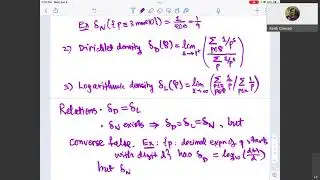 Ex δ_N({p ≡ 3 mod 10}) = 1/φ(10) = 1/4
2) Dirichlet density δ_D(P) = lim_{s→1+} (Σ_{p∈P} 1/p^s / Σ_p 1/p^s)
3) Logarithmic density δ_L(P) = lim_{x→∞} (Σ_{p≤x, p∈P} 1/p / Σ_{p≤x} 1/p)
Relations • δ_D = δ_L
• δ_N exists ⇒ δ_D = δ_L = δ_N, but
converse false. Ex: {p: decimal exp of p starts
with digit d} has δ_D = log_10((d+1)/d)
but δ_N
Keith Conrad